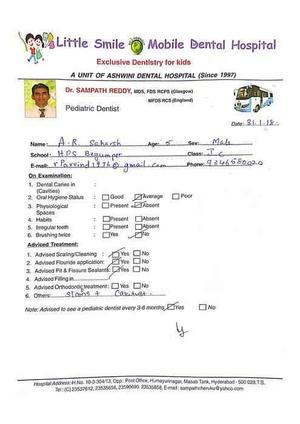 Little Smile Mobile Dental Hospital
Exclusive Dentistry for kids
A UNIT OF ASHWINI DENTAL HOSPITAL (Since 1997)
Dr. SAMPATH REDDY, MDS, FDS RCPS (Glasgow)
MFDS RCS (England)
Pediatric Dentist
Date: 31.1.18.
Name: A.R. Saharsh Age: 5 Sex: Male
School: HPS Begumpet Class: I C
E-mail: rParvind1976@gmail.com Phone: 9246580020
On Examination:
1. Dental Caries in (Cavities) :
2. Oral Hygiene Status : Good Average Poor
3. Physiological Spaces : Present Absent
4. Habits : Present Absent
5. Irregular teeth : Present Absent
6. Brushing twice : Yes No
Advised Treatment:
1. Advised Scaling/Cleaning : Yes No
2. Advised Flouride application: Yes No
3. Advised Pit & Fissure Sealants: Yes No
4. Advised Filling in
5. Advised Orthodontic treatment : Yes No
6. Others: stains +
Note: Advised to see a pediatric dentist every 3-6 months Yes No
Hospital Address: H.No. 10-3-304/13, Opp: Post Office, Humayunnagar, Masab Tank, Hyderabad - 500 028.T.S.
Tel: (C) 23537612, 23535656, 23590690 23535858, E-mail: sampathchen4u@yahoo.com